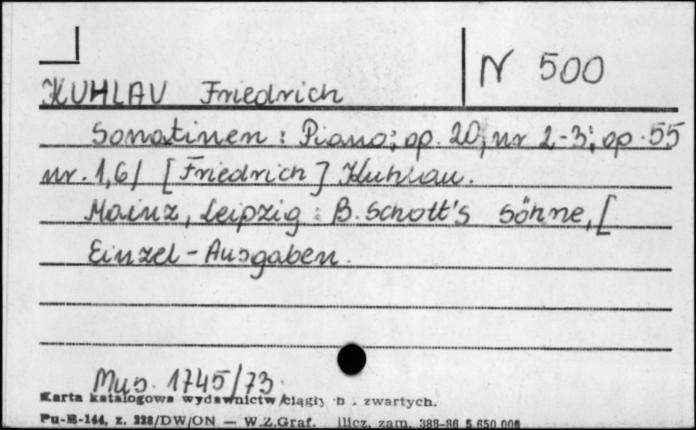 N 500
KUHLAU Friedrich
Sonatinen : Piano ; op. 20, nr 2-3 ; op. 55
nr. 1,6 / [Friedrich] Kuhlau.
Mainz, Leipzig : B. Schott's Söhne, [
Einzel-Ausgaben.
Mus. 1745/73
Karta katalogowa wydawnictw ciągły zwartych.
Pu-B-144, z. 228/DW/ON — W.Z.Graf. zam. 388-86 5.650.000